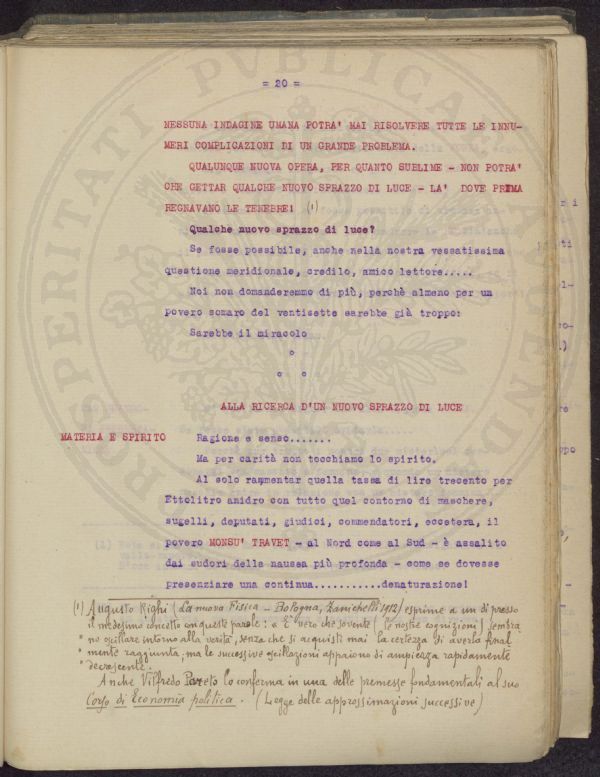 = 20 =
NESSUNA INDAGINE UMANA POTRA' MAI RISOLVERE TUTTE LE INNU-
MERI COMPLICAZIONI DI UN GRANDE PROBLEMA.
QUALUNQUE NUOVA OPERA, PER QUANTO SUBLIME - NON POTRA'
CHE GETTAR QUALCHE NUOVO SPRAZZO DI LUCE - LA' DOVE PRIMA
REGNAVANO LE TENEBRE! (1)
Qualche nuovo sprazzo di luce?
Se fosse possibile, anche nella nostra vessatissima
questione meridionale, credilo, amico lettore.....
Noi non domanderemmo di più, perchè almeno per un
povero somaro del ventisette sarebbe già troppo:
Sarebbe il miracolo
ALLA RICERCA D'UN NUOVO SPRAZZO DI LUCE
MATERIA E SPIRITO Ragione e senso.......
Ma per carità non tocchiamo lo spirito.
Al solo rammentar quella tassa di lire trecento per
Ettolitro anidro con tutto quel contorno di maschere,
sugelli, deputati, giudici, commendatori, eccetera, il
povero MONSU' TRAVET - al Nord come al Sud - è assalito
dai sudori della nausea più profonda - come se dovesse
presenziare una continua...........denaturazione!
(1) Augusto Righi (La nuova Fisica - Bologna, Zanichelli 1912) esprime a un di presso
il medesimo concetto con queste parole: « È vero che sovente (le nostre cognizioni) sembra-
" no oscillare intorno alla verità, senza che si acquisti mai la certezza di averla final-
" mente raggiunta; ma le successive oscillazioni appaiono di ampiezza rapidamente
" decrescente.
Anche Vilfredo Pareto lo conferma in una delle premesse fondamentali al suo
Corso di Economia politica. (Legge delle approssimazioni successive)
PROSPERITATI PUBLICAE AUGENDAE